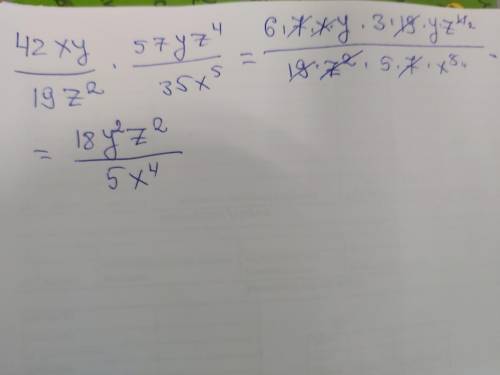 42xy/19z² · 57yz⁴/35x⁵ = 6·7·x·y·3·19·y·z⁴²/19·z²·5·7·x⁵⁴ =
= 18y²z²/5x⁴